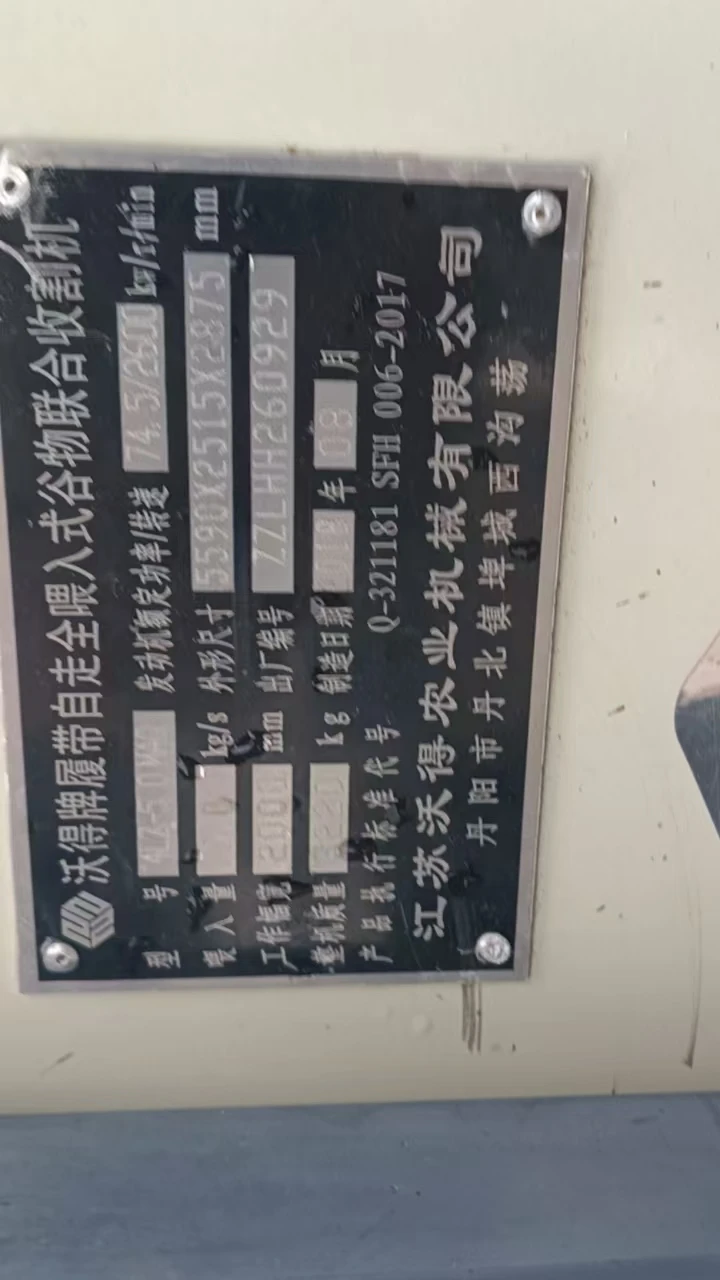 沃得牌履带自走全喂入式谷物联合收割机
型号 发动机额定功率/转速 74.5/2600 kw/r/min
喂入量 kg/s 外形尺寸 5590X2515X2875 mm
工作幅宽 2000 mm 出厂编号 ZZLHH260929
整机质量 kg 制造日期 2018 年 08 月
产品执行标准代号 Q-321181 SFH 006-2017
江苏沃得农业机械有限公司
丹阳市丹北镇埤城西沟荡